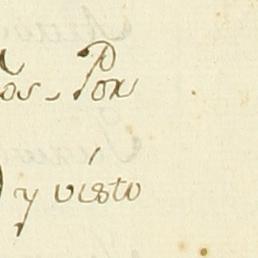 os, Por
y visto